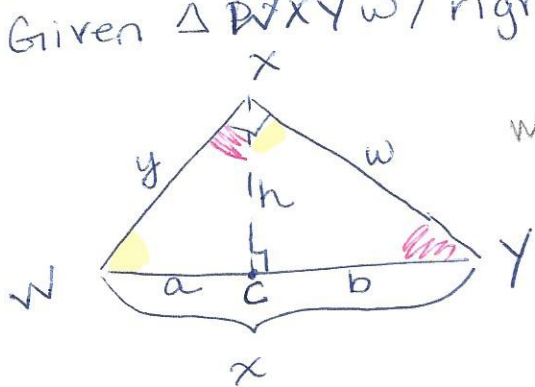 Given Δ XYW w/ righ
X
W
y
w
h
W
a
C
b
Y
x